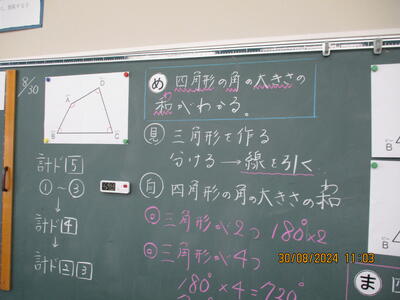 8/30
D
A
B
C
計ド5
①～③
↓
計ド4
↓
計ド23
め 四角形の角の大きさの
和がわかる。
見 三角形を作る
分ける→線を引く
向 四角形の角の大きさの和
三角形が2つ 180°×2
三角形が4つ
180°×4=720°
30/08/2024 11:03
ま 四
B
B